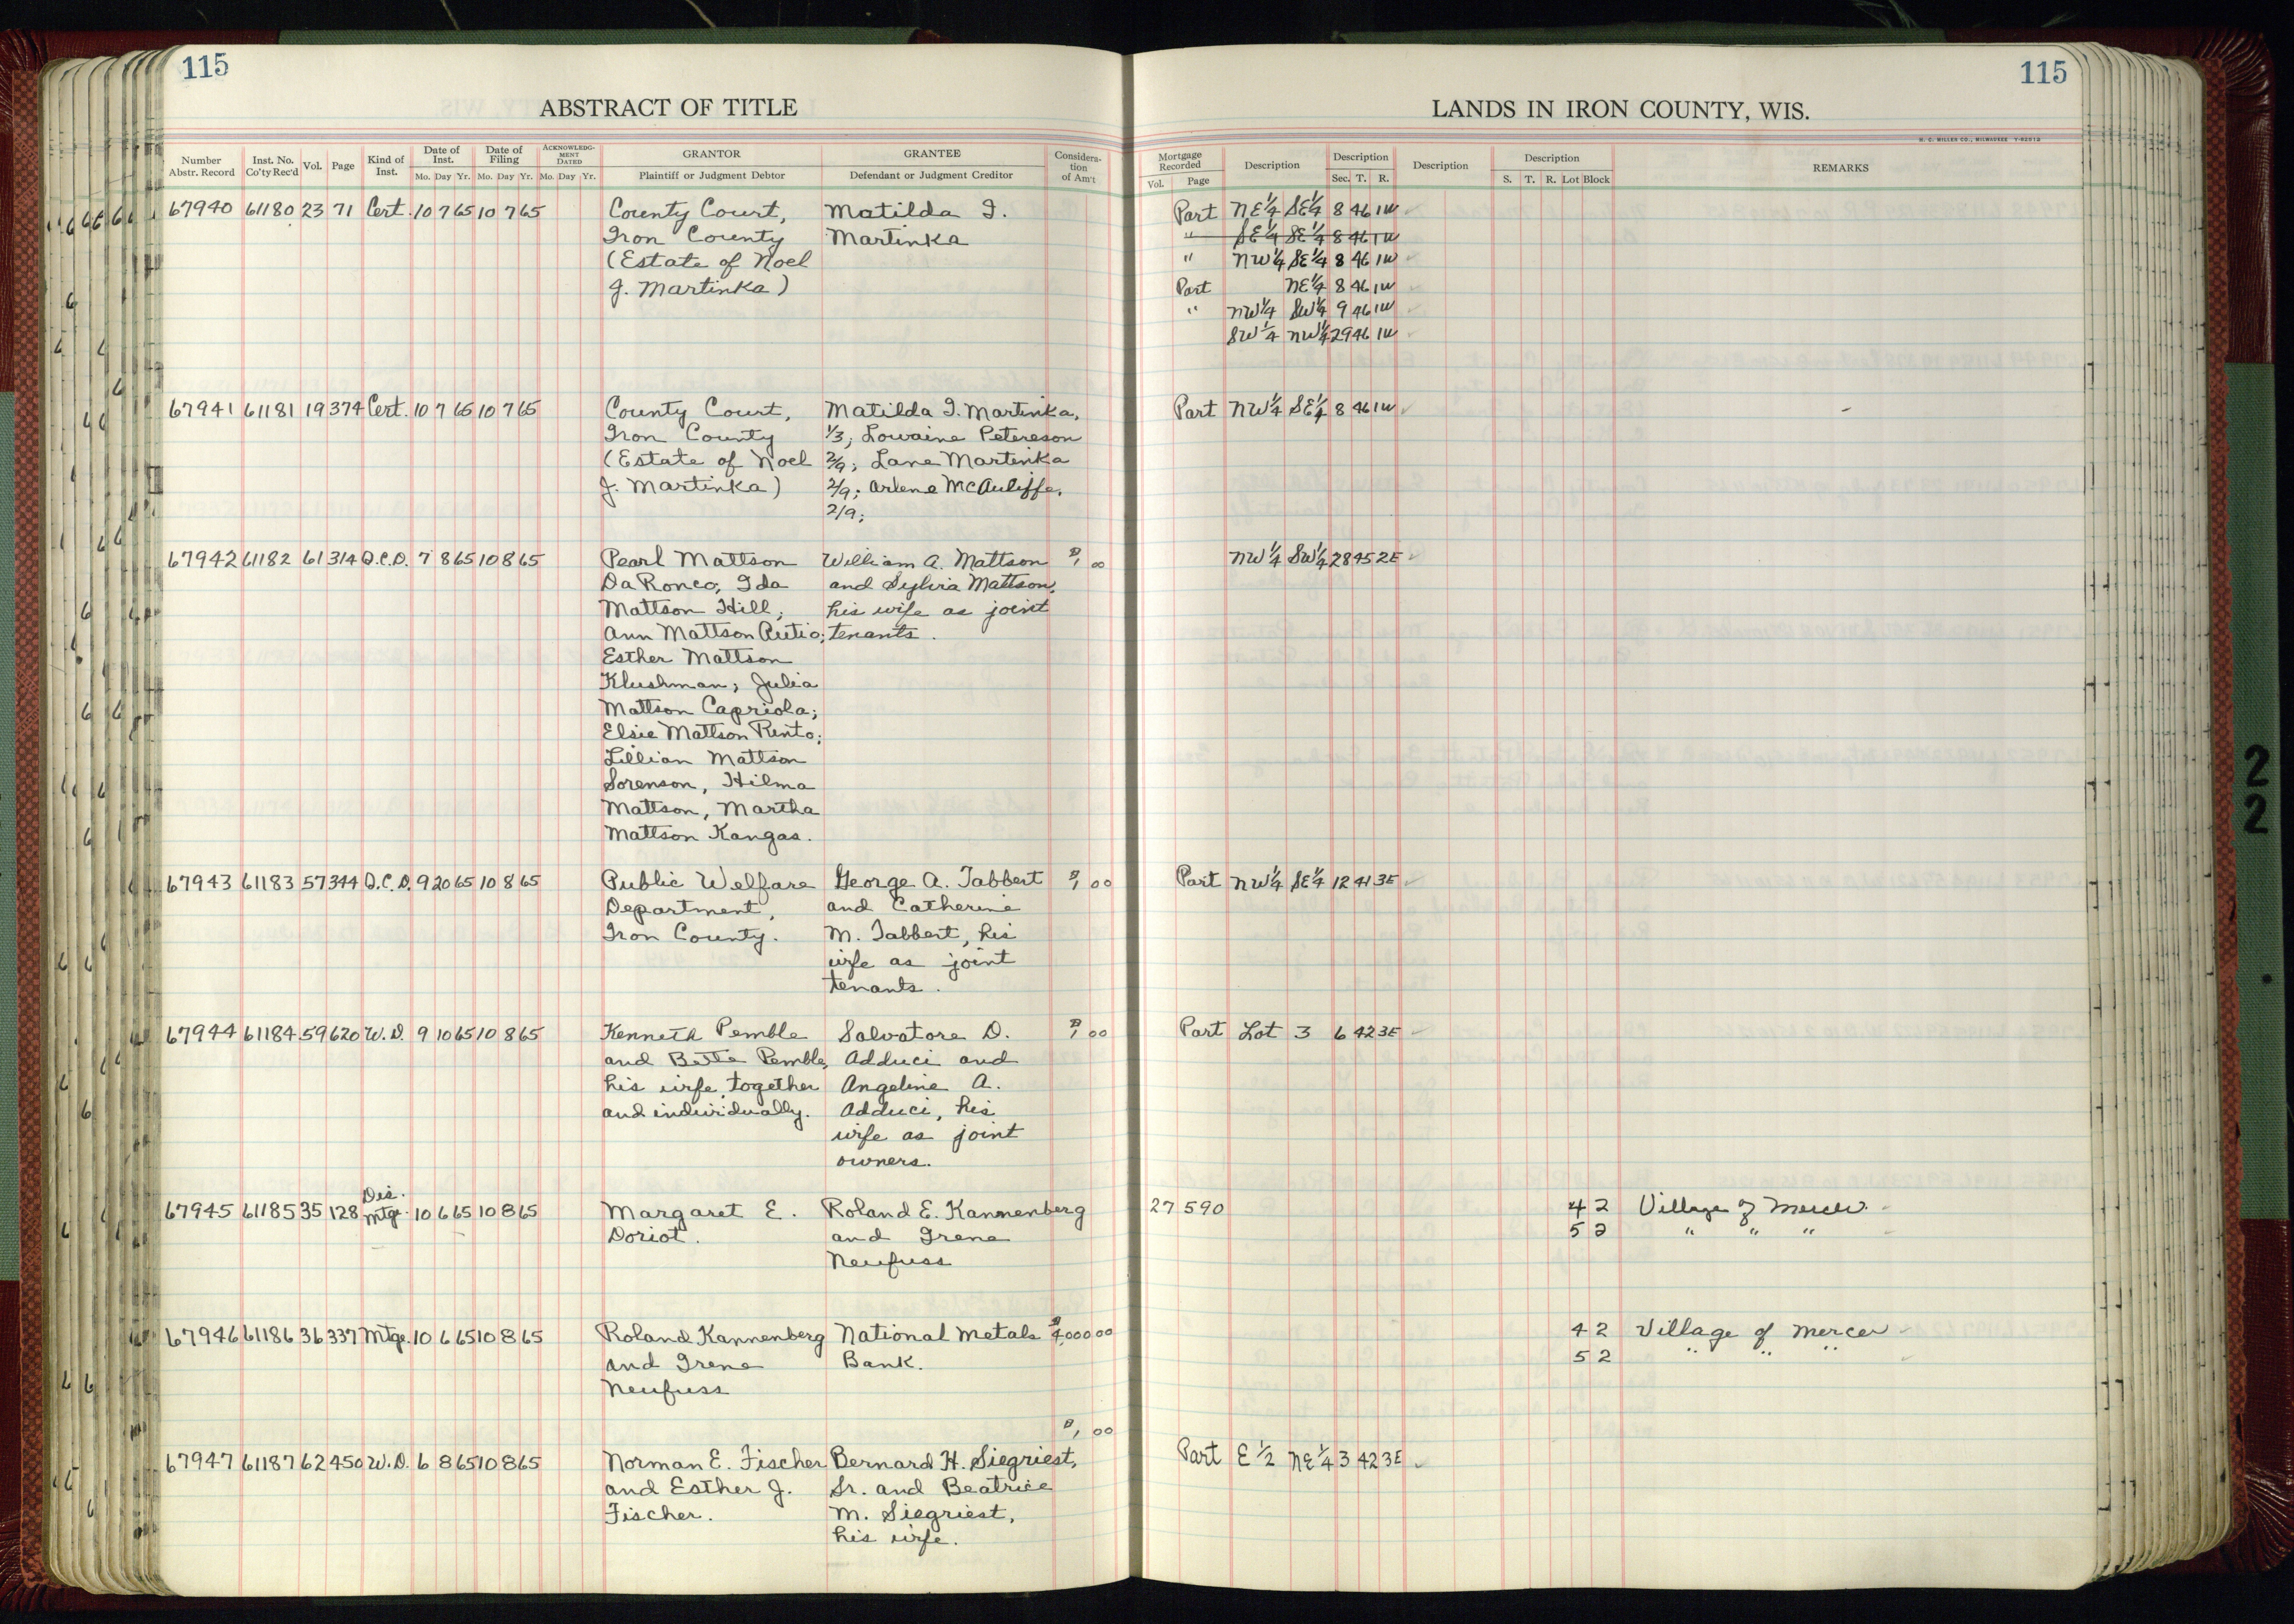 115
115
ABSTRACT OF TITLE
LANDS IN IRON COUNTY, WIS.
H. C. MILLER CO., MILWAUKEE
Number Abstr. Record Inst. No. Co'ty Rec'd Vol. Page Kind of Inst. Date of Inst. Mo. Day Yr. Date of Filing Mo. Day Yr. ACKNOWLEDG-MENT DATED Mo. Day Yr. GRANTOR Plaintiff or Judgment Debtor GRANTEE Defendant or Judgment Creditor Considera-tion of Am't
Mortgage Recorded Vol. Page Description Description Sec. T. R. Description Description S. T. R. Lot Block REMARKS
67940 61180 23 71 Cert. 10 7 65 10 7 65 County Court, Matilda I. Part NE¼ SE¼ 8 46 1W
Iron County Martinka " SE¼ SE¼ 8 46 1W
(Estate of Noel " NW¼ SE¼ 8 46 1W
J. Martinka) Part NE¼ 8 46 1W
" NW¼ SW¼ 9 46 1W
SW¼ NW¼ 29 46 1W
67941 61181 19 374 Cert. 10 7 65 10 7 65 County Court, Matilda I. Martinka, Part NW¼ SE¼ 8 46 1W
Iron County 1/3; Lowaine Petereson
(Estate of Noel 2/9; Lane Martinka
J. Martinka) 2/9; Arlene McAuliffe,
2/9;
67942 61182 61 314 Q.C.D. 7 8 65 10 8 65 Pearl Mattson William A. Mattson $1 00 NW¼ SW¼ 28 45 2E
DaRonco, Ida and Sylvia Mattson,
Mattson Hill, his wife as joint
Ann Mattson Autio; tenants.
Esther Mattson
Klushman; Julia
Mattson Capriola;
Elsie Mattson Rinto;
Lillian Mattson
Sorenson, Hilma
Mattson, Martha
Mattson Kangas.
67943 61183 57 344 Q.C.D. 9 20 65 10 8 65 Public Welfare George A. Tabbert $1 00 Part NW¼ SE¼ 12 41 3E
Department, and Catherine
Iron County. M. Tabbert, his
wife as joint
tenants.
67944 61184 59 620 W.D. 9 10 65 10 8 65 Kenneth Pemble Salvatore D. $1 00 Part Lot 3 6 42 3E
and Bette Pemble, Adduci and
his wife, together Angeline A.
and individually. Adduci, his
wife as joint
owners.
67945 61185 35 128 Dis. Mtge. 10 6 65 10 8 65 Margaret E. Roland E. Kannenberg 27 590 4 2 Village of Mercer
Doriot. and Irene 5 2 " " "
Neufuss
67946 61186 36 337 Mtge. 10 6 65 10 8 65 Roland Kannenberg National Metals $4,000 00 4 2 Village of Mercer
and Irene Bank. 5 2 " " "
Neufuss
$1 00
67947 61187 62 450 W.D. 6 8 65 10 8 65 Norman E. Fischer Bernard H. Siegriest, Part E½ NE¼ 3 42 3E
and Esther J. Sr. and Beatrice
Fischer. M. Siegriest,
his wife.
2
2